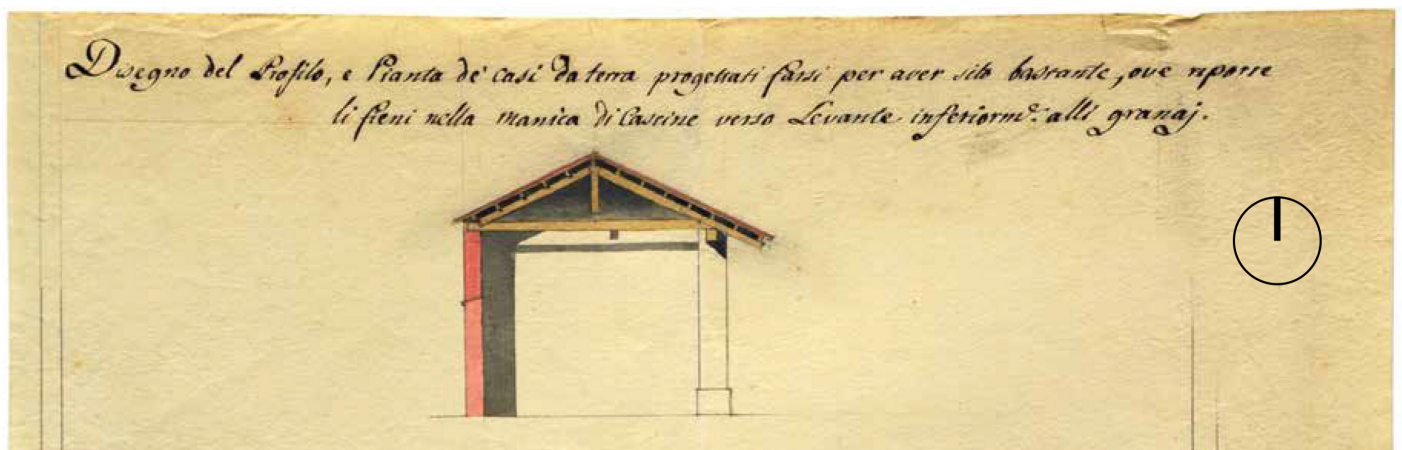 Disegno del Profilo, e Pianta de' casi da terra progettati farsi per aver sito bastante, ove riporre
li fieni nella manica di Cascine verso Levante inferiorm.e alli granaj.